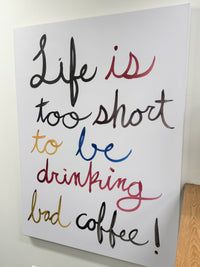 Life is
too short
to be
drinking
bad coffee!